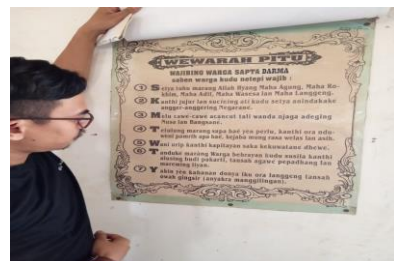 WEWARAH PITU
WAJIBING WARGA SAPTA DARMA
saben warga kudu netepi wajib :
1 Setya tuhu marang Allah Hyang Maha Agung, Maha Ro-
khim, Maha Adil, Maha Wasesa lan Maha Langgeng.
2 Kanthi jujur lan sucining ati kudu setya anindakake
angger-anggering Negarane.
3 Melu cawe-cawe acancut tali wanda njaga adeging
Nusa lan Bangsane.
4 Tetulung marang sapa bae yen perlu, kanthi ora ndu-
weni pamrih apa bae, kejaba mung rasa welas lan asih.
5 Wani urip kanthi kapitayan saka kekuwatane dhewe.
6 Tanduke marang Warga bebrayan kudu susila kanthi
alusing budi pakarti, tansah agawe pepadhang lan
mareming liyan.
7 Yakin yen kahanan donya iku ora langgeng tansah
owah gingsir (anyakra manggilingan).